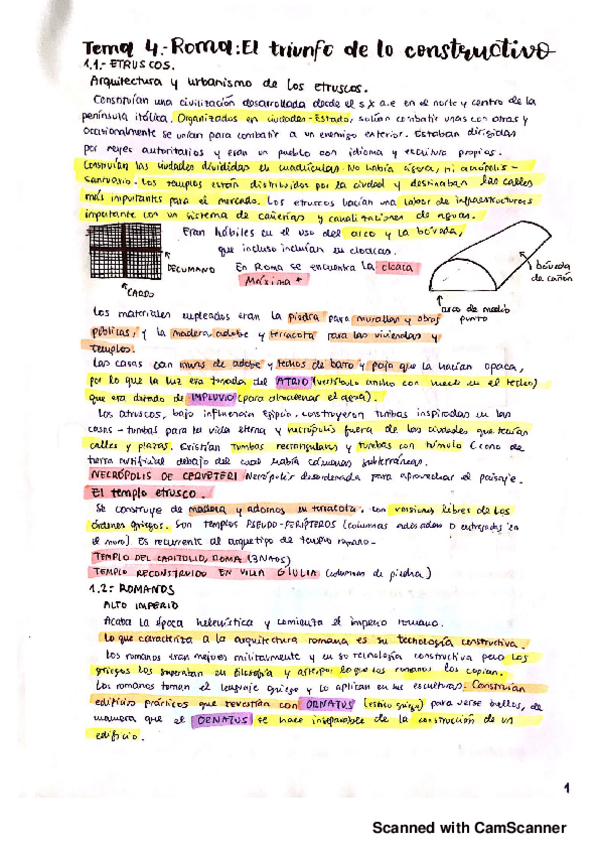 Tema 4.- Roma: El triunfo de lo constructivo
1.1.- ETRUSCOS.
Arquitectura y urbanismo de los etruscos.
Construían una civilización desarrollada desde el s.X a.e en el norte y centro de la
península itálica. Organizados en ciudades-Estado, solían combatir unas con otras y
ocasionalmente se unían para combatir a un enemigo exterior. Estaban dirigidas
por reyes autoritarios y eran un pueblo con idioma y escritura propios.
Construían las ciudades divididas en cuadrículas. No había ágora, ni acrópolis-
santuario. Los templos están distribuidos por la ciudad y destinaban las calles
más importantes para el mercado. Los etruscos hacían una labor de infraestructuras
importante con un sistema de cañerías y canalizaciones de aguas.
Eran hábiles en el uso del arco y la bóveda,
que incluso incluían en cloacas.
En Roma se encuentra la cloaca
Máxima *
DECUMANO
CARDO
bóveda
de cañón
arco de medio
punto
Los materiales empleados eran la piedra para murallas y obras
públicas, y la madera adobe y terracota para las viviendas y
templos.
Las casas con muros de adobe y techos de barro y paja que la hacían opaca,
por lo que la luz era tomada del ATRIO (vestíbulo amplio con hueco en el techo)
que era dotado de IMPLUVIO (para almacenar el agua).
Los etruscos, bajo influencia egipcia, construyeron tumbas inspiradas en las
casas - tumbas para la vida eterna y necrópolis fuera de las ciudades que tenían
calles y plazas. Existían tumbas rectangulares y tumbas con túmulo (cono de
tierra artificial debajo del cual había cámaras subterráneas.
NECRÓPOLIS DE CERVETERI Necrópolis desordenada para aprovechar el paisaje.
El templo etrusco.
Se construye de madera y adornos en terracota, con versiones libres de los
órdenes griegos. Son templos PSEUDO-PERÍPTEROS (columnas adosadas o entregadas en
el muro). Es recurrente al arquetipo de templo romano-
TEMPLO DEL CAPITOLIO, ROMA (3 NAOS)
TEMPLO RECONSTRUIDO EN VILLA GIULIA (columnas de piedra)
1.2.- ROMANOS
ALTO IMPERIO
Acaba la época helenística y comienza el imperio romano.
Lo que caracteriza a la arquitectura romana es su tecnología constructiva.
Los romanos eran mejores militarmente y en su tecnología constructiva pero los
griegos los superaban en filosofía y arte, por lo que los romanos los copian.
Los romanos toman el lenguaje griego y lo aplican en sus esculturas. Construían
edificios prácticos que revestían con ORNATUS (estilo griego) para verse bellos, de
manera que el ORNATUS se hace inseparable de la construcción de un
edificio.
1
Scanned with CamScanner